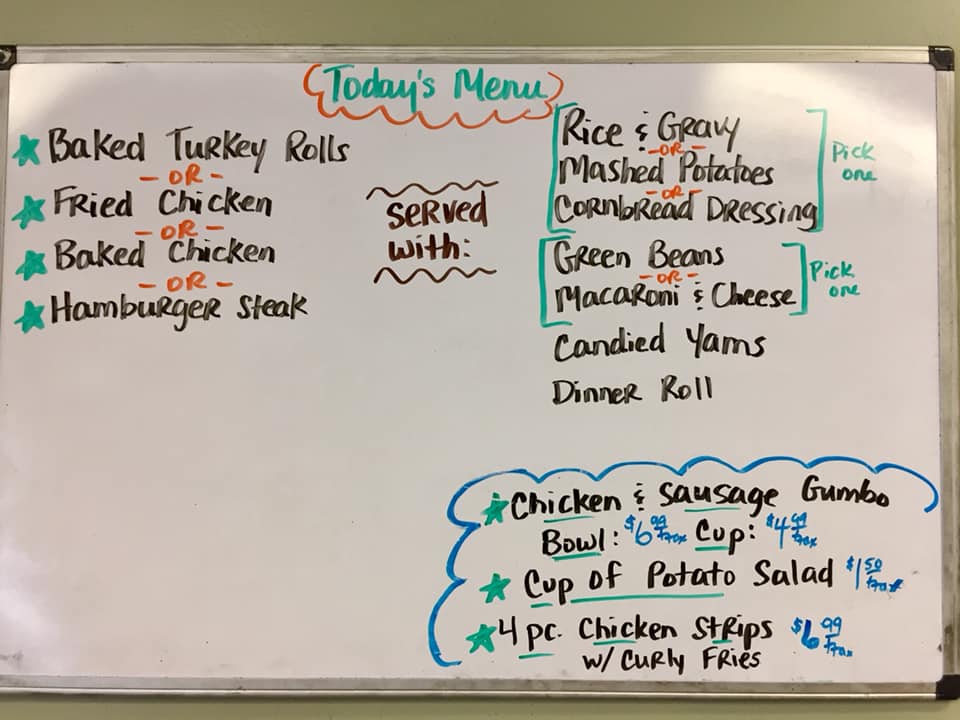 Today's Menu
Baked Turkey Rolls
- OR -
Fried Chicken
- OR -
Baked Chicken
- OR -
Hamburger Steak
Served
with:
Rice & Gravy
- OR -
Mashed Potatoes
- OR -
Cornbread Dressing
Pick
one
Green Beans
- OR -
Macaroni & Cheese
Pick
one
Candied Yams
Dinner Roll
Chicken & Sausage Gumbo
Bowl: $6.99 +tax Cup: $4.99 +tax
Cup of Potato Salad $1.50 +tax
4 pc. Chicken Strips $6.99 +tax
w/ Curly Fries